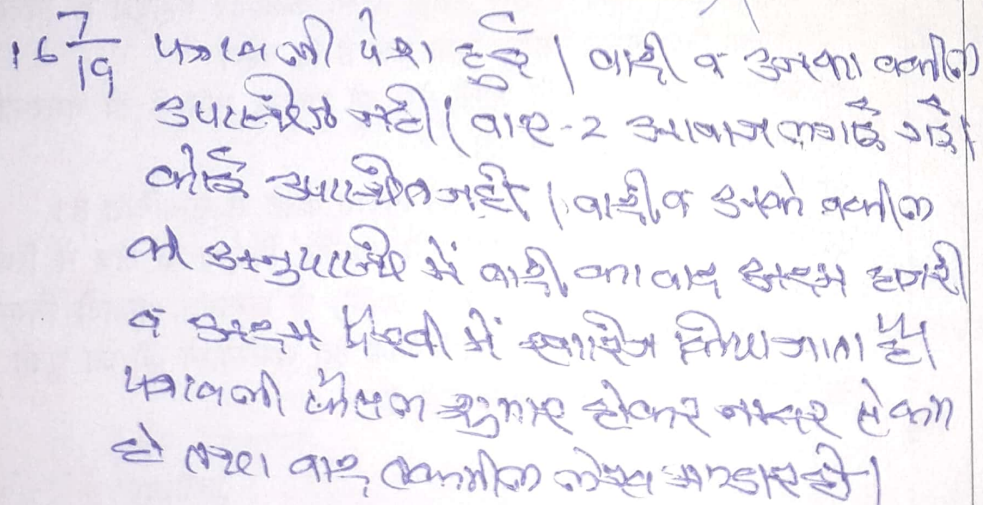 16 7/19 पत्रावली पेश हुई। वादी व उनका वकील
उपस्थित नहीं। बार-2 आवाज लगाई गई।
कोई उपस्थित नहीं। वादी व उनके वकील
की अनुपस्थिति में वादी का वाद अदम हाजरी
व अदम पैरवी में खारिज किया जाता है।
पत्रावली फैसल शुमार होकर नम्बर से कम
हो तथा बाद तकमील लेख भण्डार हो।